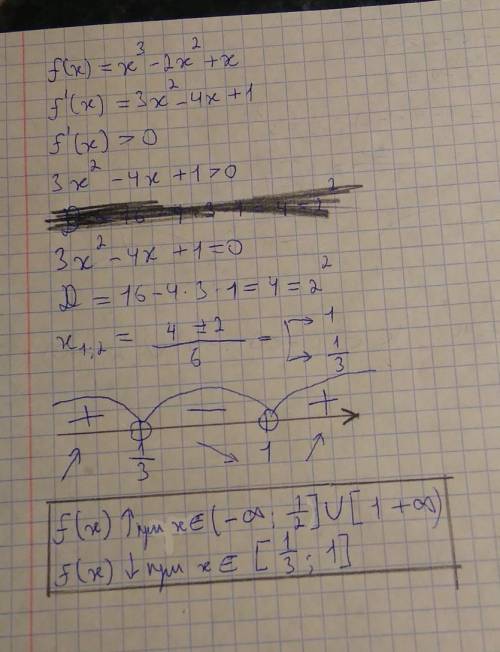 f(x) = x³ - 2x² + x
f'(x) = 3x² - 4x + 1
f'(x) > 0
3x² - 4x + 1 > 0
3x² - 4x + 1 = 0
D = 16 - 4·3·1 = 4 = 2²
x₁;₂ = (4 ± 2)/6 = [→ 1 → 1/3
+ − +
1/3 1
↗ ↘ ↗
f(x) ↑ при x ∈ (-∞; 1/2] ∪ [1 +∞)
f(x) ↓ при x ∈ [1/3; 1]